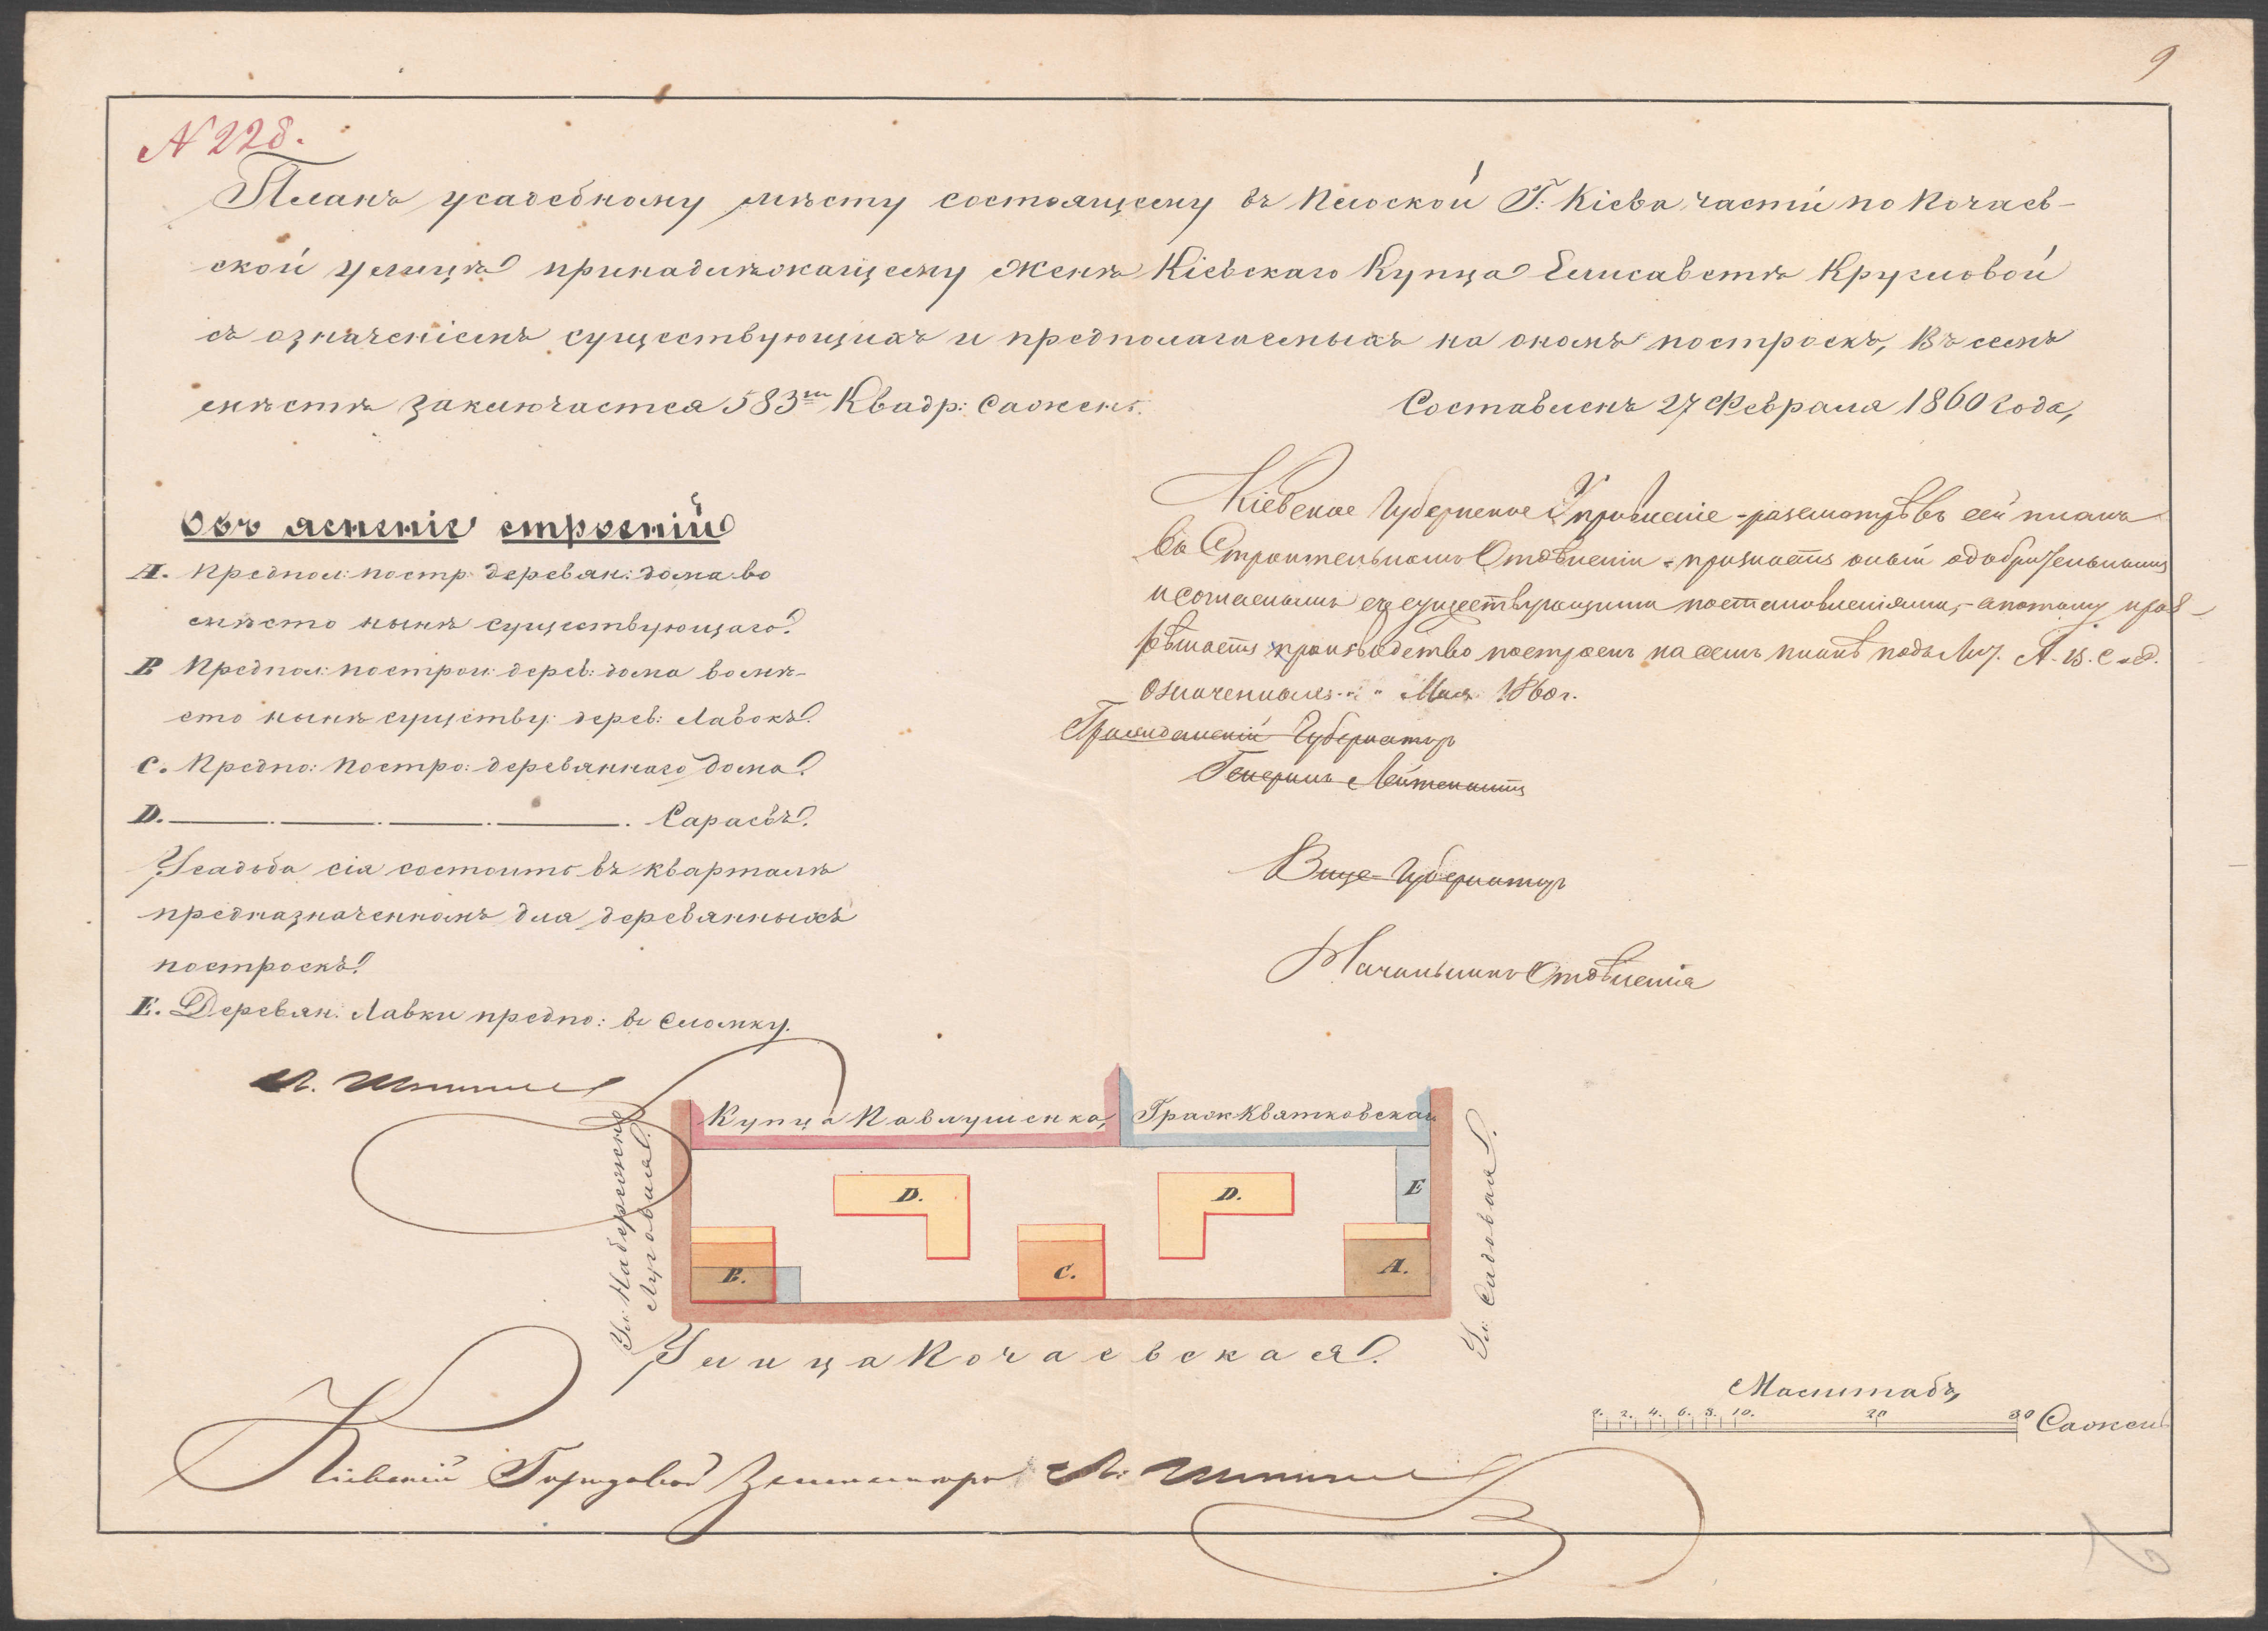 9
N 228.
Планъ усадебному мѣсту состоящему въ Плоской Г: Кіева части по Почаев-
ской улицѣ принадлѣжащему Женѣ Кіевскаго Купца Елисаветѣ Кругловой
съ означеніемъ существующихъ и предполагаемыхъ на ономъ построекъ, Въ семъ
мѣстѣ заключается 583 Квадр: Сажень.
Составленъ 27 Февраля 1860 Года,
Объясненіе строеній
A. Предпол: постр: деревян: дома во
мѣсто нынѣ существующаго.
B Предпол: построи: дерев: дома вомѣ-
сто нынѣ существу: дерев: Лавокъ.
C. Предпо: Постро: деревяннаго дома.
D. Сараевъ.
Усадьба сія состоитъ въ кварталѣ
предназначенномъ для деревянныхъ
построекъ.
E. Деревян: Лавки предпо: въ Сломку.
Кіевское Губернское Правленіе разсмотрѣвъ сей планъ
въ Строительномъ Отдѣленіи признаетъ оный одобрительнымъ
и согласнымъ съ существующими постановленіями, а потому
производство построекъ на семъ планѣ подъ Лит. А. В. С и D.
означенныхъ. " " Мая 1860 г.
Гражданскій Губернаторъ
Генералъ Лейтенантъ
Вице-Губернаторъ
Начальникъ Отдѣленія
Купца Павлушенка,
Граж Квятковской
Ул: Набережно
Луговая.
D.
D.
E
B.
C.
A.
Ул: Садовая.
Улица Почаевская.
Масштабъ,
0. 2. 4. 6. 8. 10. 20 30 Сажень
Кіевскій Городовой Землемѣръ